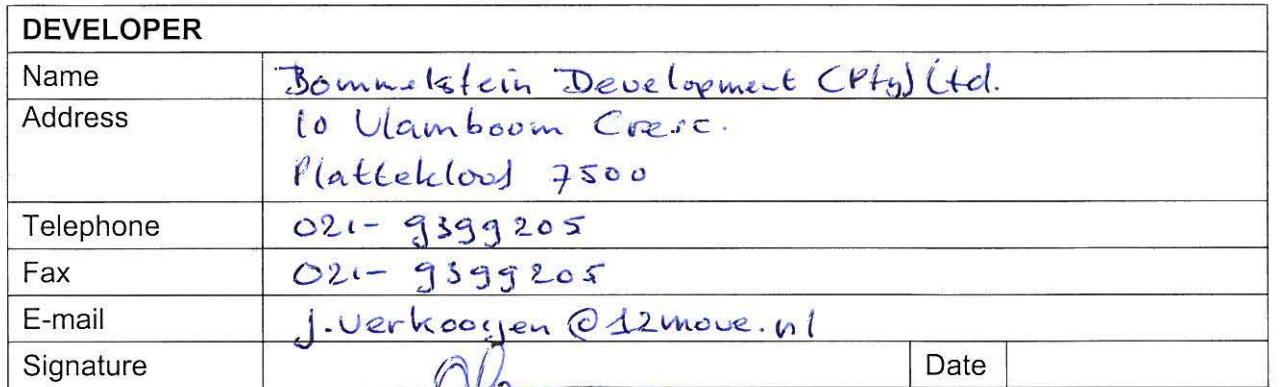 DEVELOPER
Name Bommelstein Development (Pty) Ltd.
Address 10 Vlamboom Cresc.
Plattekloof 7500
Telephone 021- 9399205
Fax 021- 9399205
E-mail j.verkooyen@12move.nl
Signature Date